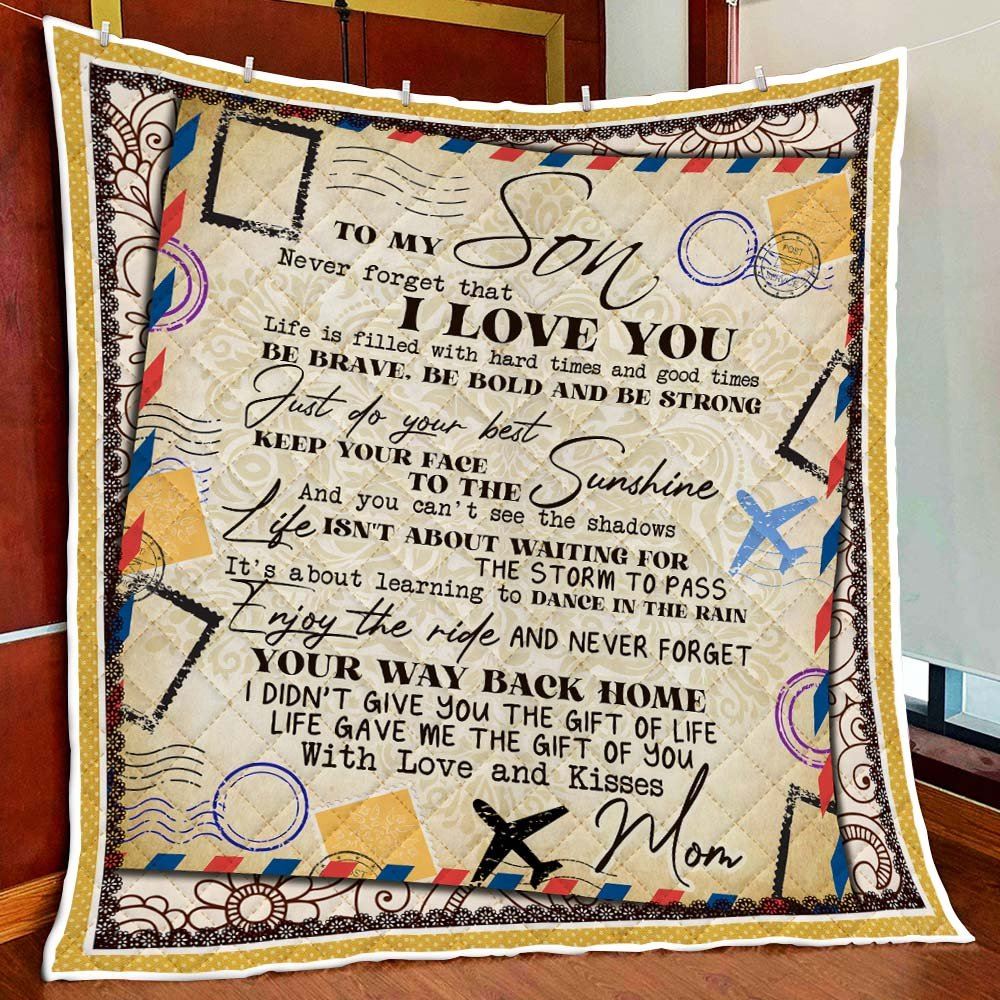 TO MY Son
Never forget that
I LOVE YOU
Life is filled with hard times and good times
BE BRAVE, BE BOLD AND BE STRONG
Just do your best
KEEP YOUR FACE
TO THE Sunshine
And you can't see the shadows
Life ISN'T ABOUT WAITING FOR
THE STORM TO PASS
It's about learning to DANCE IN THE RAIN
Enjoy the ride AND NEVER FORGET
YOUR WAY BACK HOME
I DIDN'T GIVE YOU THE GIFT OF LIFE
LIFE GAVE ME THE GIFT OF YOU
With Love and Kisses
Mom
POST
SERVICE
POST